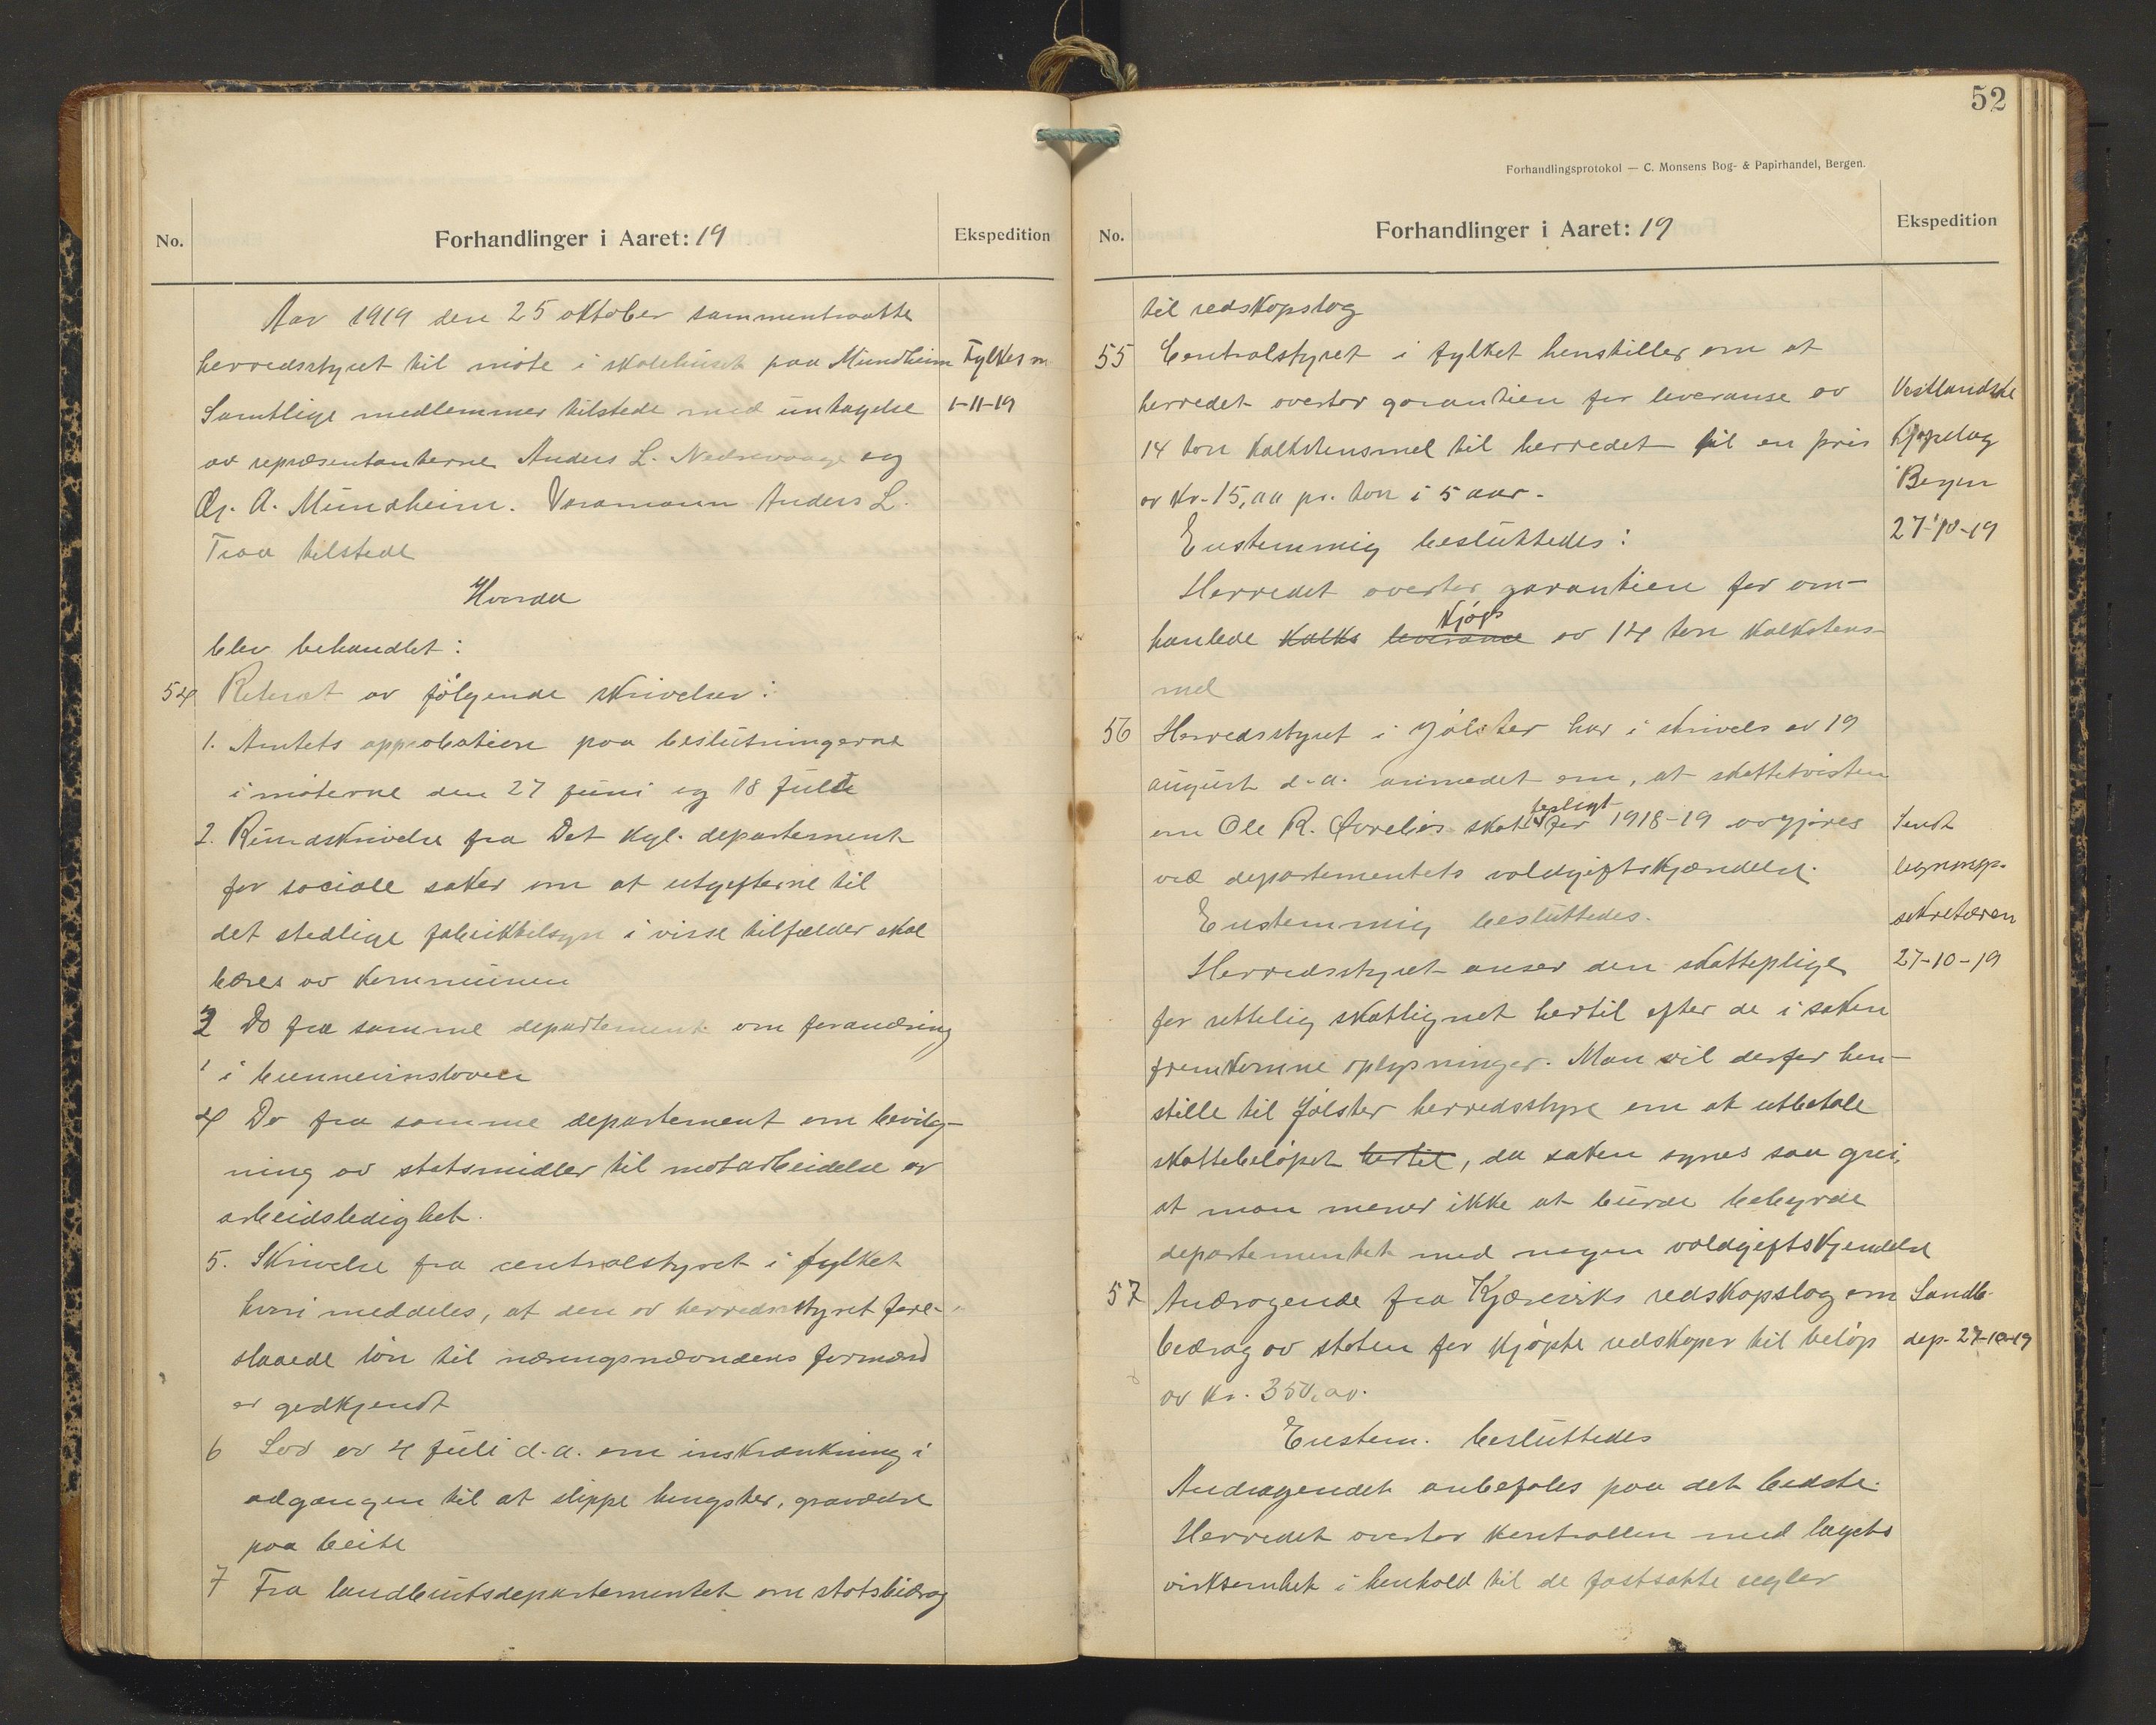 No.
Forhandlinger i Aaret: 19
Ekspedition
Aar 1919 den 25 oktober sammentraatte
herredsstyret til møte i skolehuset paa Mundheim
Fylkesm
Samtlige medlemmer tilstede med untagelse
1-11-19
av repræsentanterne Anders L. Nedrevaage og
A. Mundheim. Varamann Anders L.
Traa tilstede
Hvorda
blev behandlet:
54 Referat av følgende skrivelser:
1. Amtets approbation paa beslutningerne
i møterne den 27 juni og 18 juli
2. Rundskrivelse fra Det Kgl. departement
for sociale saker om at utgifterne til
det stedlige fabriktilsyn i visse tilfælder skal
bæres av kommunen
3 Do fra samme departement om forandring
i
4 Do fra samme departement om bevilg-
ning av statsmidler til motarbeidelse av
arbeidsledighet.
5. Skrivelse fra centralstyret i fylket
hvori meddeles, at den av herredsstyret fore-
slaaede løn til næringsnævndens formand
er godkjendt
6 Lov av 4 juli d.a. om inskrænkning i
adgangen til at slippe hingster, graveirer
paa beite
7 Fra landbruksdepartementet om statsbidrag
52
Forhandlingsprotokol — C. Monsens Bog- & Papirhandel, Bergen.
No.
Forhandlinger i Aaret: 19
Ekspedition
til redskapslag
55 Centralstyret i fylket henstiller om at
herredet overtar garantien for leveranse av
14 ton kalkstensmel til herredet til en pris
av kr. 15,00 pr. ton i 5 aar.
Vestlandske
Kjøpelag
Bergen
27-10-19
Enstemmig besluttedes:
Herredet overtar garantien for om-
kjøps
hanlede kalks leveranse av 14 ton kalkstens-
mel
56 Herredsstyret i Jølster har i skrivels av 19
august d.a. anmodet om, at skattetvisten
tepligt
om Ole R. Øvrebøs skat for 1918-19 avgjøres
ved departementets voldgiftskjændelse.
Sendt
lignings.
sekretæren
27-10-19
Enstemmig besluttedes.
Herredsstyret anser den skatteplige
for rettelig skatlignet hertil efter de i saken
fremkomne oplysninger. Man vil derfor hen-
stille til Jølster herredsstyre om at utbetale
skattebeløpet hertil, da saken synes saa grei,
at man mener ikke at burde bebyrde
departementet med nogen voldgiftskjendelse
57 Andragende fra Kjæreviks redskapslag om
bidrag av staten for kjøpte redskaper til beløp
av kr. 350,00.
Landb.
dep. 27-10-19
Enstem. besluttedes
Andragendet anbefales paa det bedste.
Herredet overtar kontrollen med lagets
virksomhet i henhold til de fastsatte regler